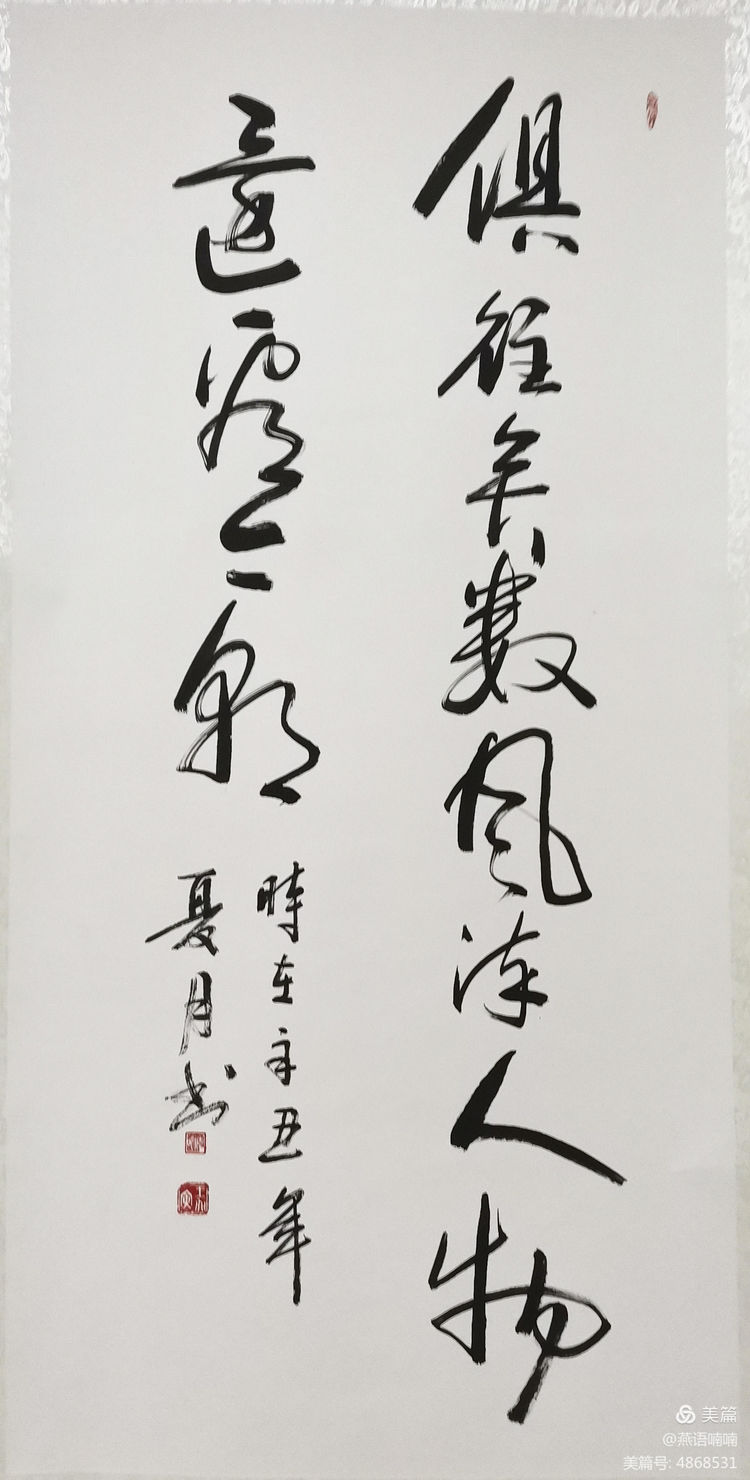 俱往矣數風流人物
還看今朝
時在辛丑年
夏月書
美篇
@燕语喃喃
美篇号: 4868531